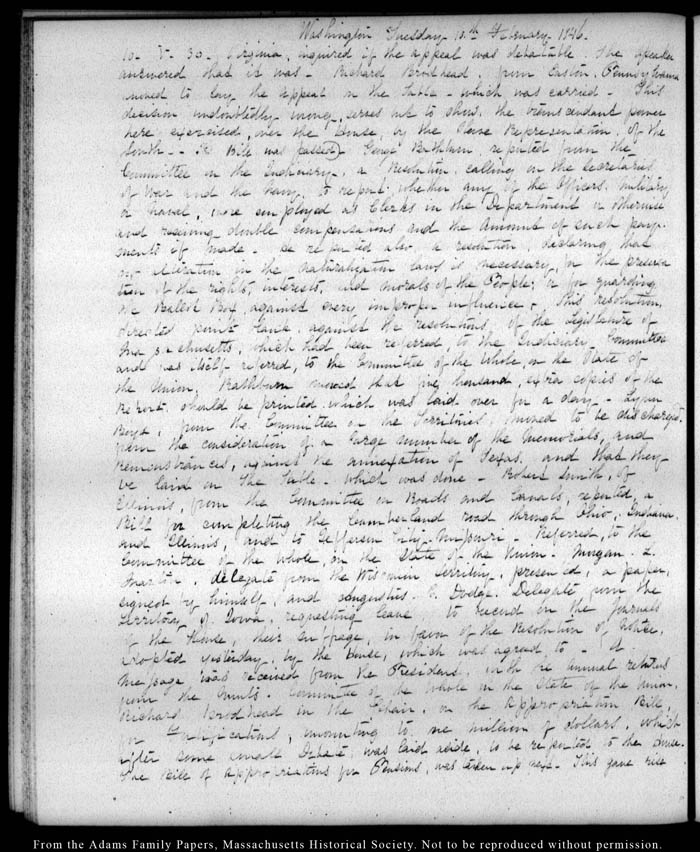 Washington Tuesday 10.th February 1846.
10. V. 30. Virginia, inquired if the appeal was debatable. The Speaker
answered that it was - Richard Brodhead, from Easton, Pennsylvania
moved to lay the appeal on the table - which was carried - This
decision undoubtedly wrong, serves but to show, the transcendant power
here exercised, over the House, by the Slave Representation, of the
South - Bill was passed) George Rathbun, reported from the
Committee on the Judiciary, a Resolution, calling on the Secretaries
of War and the Navy, to report, whether any of the Officers, military
or naval, were employed as Clerks in the Department or otherwise
and receiving double compensations and the amount of such pay-
ments if made - he reported also a resolution, declaring that
no alteration in the naturalization laws is necessary, for the preserva
tion of the rights, interests, and morals of the People; or for guarding
the Ballot Box, against every improper influence. This resolution,
directed point blank, against the resolutions, of the Legislature of
Massachusetts, which had been referred, to the Judiciary Committee
and was itself referred, to the Committee of the whole, on the State of
the Union, Rathbun moved that five thousand, extra copies of the
Report, should be printed, which was laid over for a day - Lynn
Boyd, from the Committee on the Territories, moved to be discharged,
from the consideration of a large number of the memorials, and
remonstrances, against the annexation of Texas, and that they
be laid on the table - which was done - Robert Smith, of
Illinois, from the Committee on Roads and Canals, reported, a
Bill for completing the Cumberland road through Ohio, Indiana
and Illinois, and to Jefferson City, Missouri - Referred, to the
Committee of the whole, on the State of the Union. Morgan L.
Martin, delegate from the Wisconsin Territory, presented, a paper,
signed by himself, and Augustus C. Dodge, Delegate from the
Territory of Iowa, requesting leave to record on the Journals
of the House, their suffrage, in favor of the Resolution of Notice,
adopted yesterday, by the House, which was agreed to - A
message was received from the President, with the annual returns
from the Mints. Committee of the whole on the State of the Union,
Richard Brodhead in the Chair, on the Appropriation Bill,
for Fortifications, amounting to one million of dollars, which
after some small Debate, was laid aside, to be reported to the House.
The Bill of Appropriations for Pensions, was taken up next - This gave rise
From the Adams Family Papers, Massachusetts Historical Society. Not to be reproduced without permission.